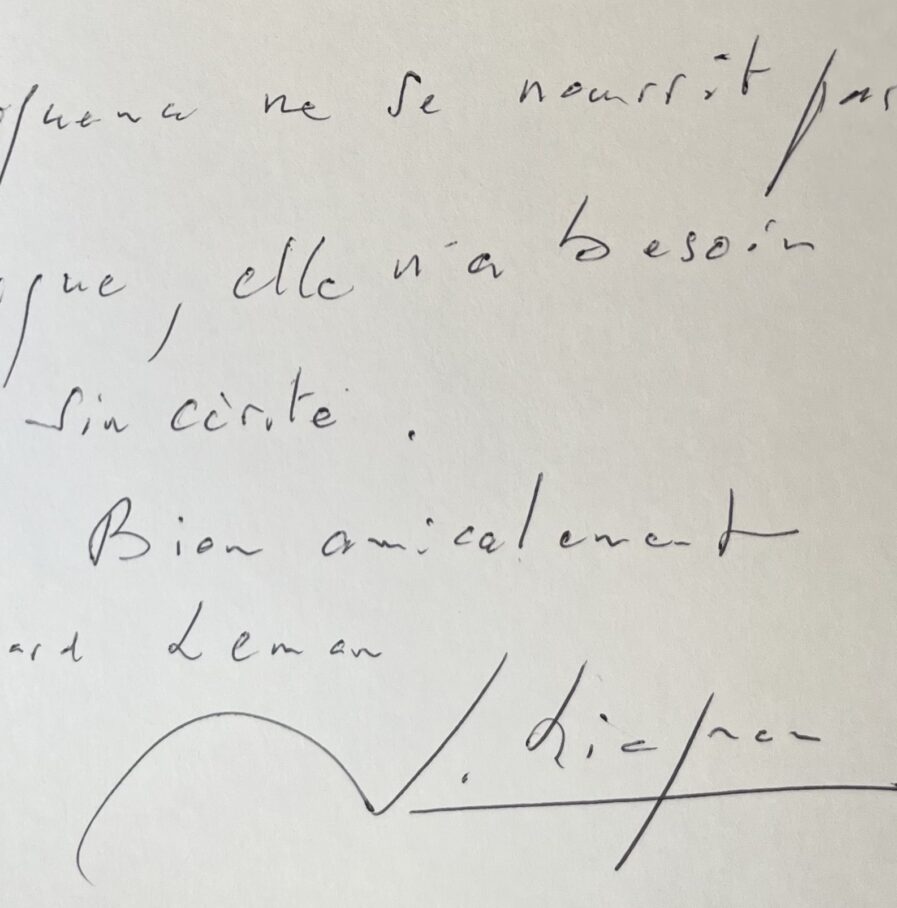 ne se nourrit pas
que, elle n'a besoin
sincérité.
Bien amicalement
ard Leman